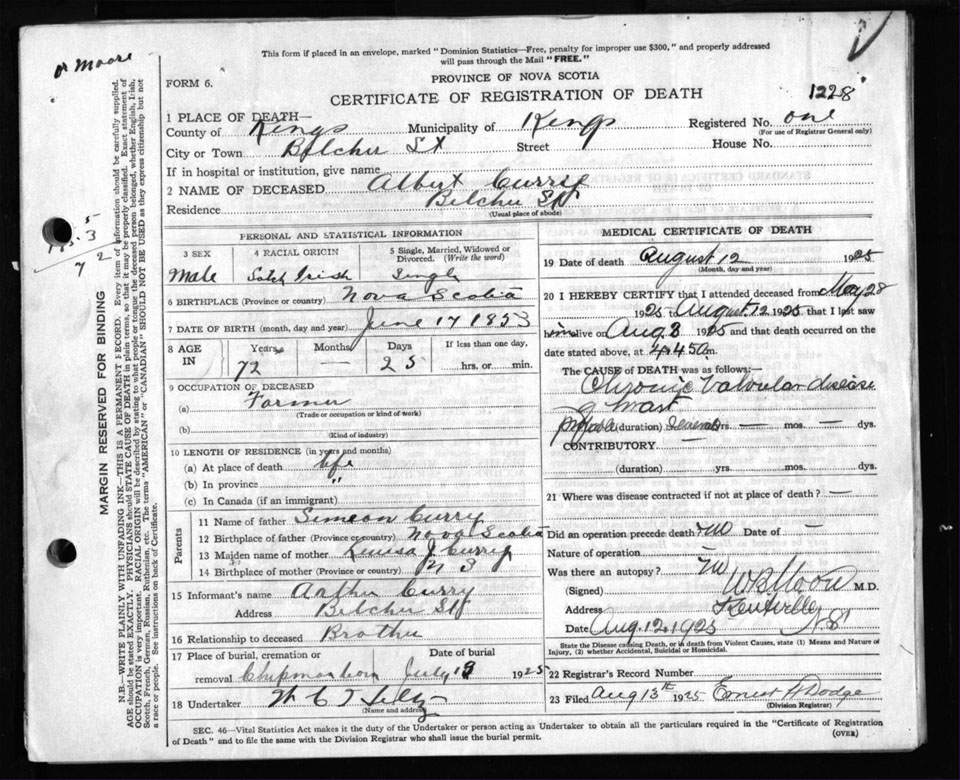 or Moore
This form if placed in an envelope, marked "Dominion Statistics—Free, penalty for improper use $300," and properly addressed
will pass through the Mail "FREE."
FORM 6.
PROVINCE OF NOVA SCOTIA
CERTIFICATE OF REGISTRATION OF DEATH
1228
1 PLACE OF DEATH—
County of Kings Municipality of Kings Registered No. one
(For use of Registrar General only)
City or Town Belcher St Street House No.
If in hospital or institution, give name
2 NAME OF DECEASED Albert Curry
Residence Belcher St
(Usual place of abode)
PERSONAL AND STATISTICAL INFORMATION
3 SEX 4 RACIAL ORIGIN 5 Single, Married, Widowed or Divorced. (Write the word)
Male Irish Single
6 BIRTHPLACE (Province or country) Nova Scotia
7 DATE OF BIRTH (month, day and year) June 17 1853
8 AGE IN Years Months Days If less than one day,
72 — 25 hrs. or min.
9 OCCUPATION OF DECEASED
(a) Farmer
(Trade or occupation or kind of work)
(b)
(Kind of industry)
10 LENGTH OF RESIDENCE (in years and months)
(a) At place of death life
(b) In province "
(c) In Canada (if an immigrant)
Parents
11 Name of father Simeon Curry
12 Birthplace of father (Province or country) Nova Scotia
13 Maiden name of mother J Curry
14 Birthplace of mother (Province or country) N S
15 Informant's name Arthur Curry
Address Belcher St
16 Relationship to deceased Brother
17 Place of burial, cremation or removal Date of burial
Chipman 1925
18 Undertaker W C T
(Name and address)
MEDICAL CERTIFICATE OF DEATH
19 Date of death August 12 1925
(Month, day and year)
20 I HEREBY CERTIFY that I attended deceased from May 28
1925 August 12 1925 that I last saw
him alive on Aug 3 1925 and that death occurred on the
date stated above, at
The CAUSE OF DEATH was as follows:
Chronic Valvular disease
of
(duration) Several yrs. — mos. — dys.
CONTRIBUTORY —
(duration) yrs. mos. dys.
21 Where was disease contracted if not at place of death? —
Did an operation precede death? no Date of —
Nature of operation —
Was there an autopsy? no
(Signed) W B Moore M.D.
Address Kentville
Date Aug. 12. 1925 N S
State the Disease causing Death, or in death from Violent Causes, state (1) Means and Nature of
Injury, (2) whether Accidental, Suicidal or Homicidal.
22 Registrar's Record Number
23 Filed Aug 13th 1925 Ernest Dodge
(Division Registrar)
SEC. 46—Vital Statistics Act makes it the duty of the Undertaker or person acting as Undertaker to obtain all the particulars required in the "Certificate of Registration
of Death" and to file the same with the Division Registrar who shall issue the burial permit.
(OVER)
MARGIN RESERVED FOR BINDING
N.B.—WRITE PLAINLY WITH UNFADING INK—THIS IS A PERMANENT RECORD. Every item of information should be carefully supplied.
AGE should be stated EXACTLY. PHYSICIANS should STATE CAUSE OF DEATH in plain terms, so that it may be properly classified. Exact statement of
OCCUPATION is very important. RACIAL ORIGIN will be described by stating to what people or tongue the deceased person belonged, whether English, Irish,
Scotch, French, German, Russian, Ruthenian, etc. The terms "AMERICAN" or "CANADIAN" SHOULD NOT BE USED as they express citizenship but not
a race or people. See instructions on back of Certificate.